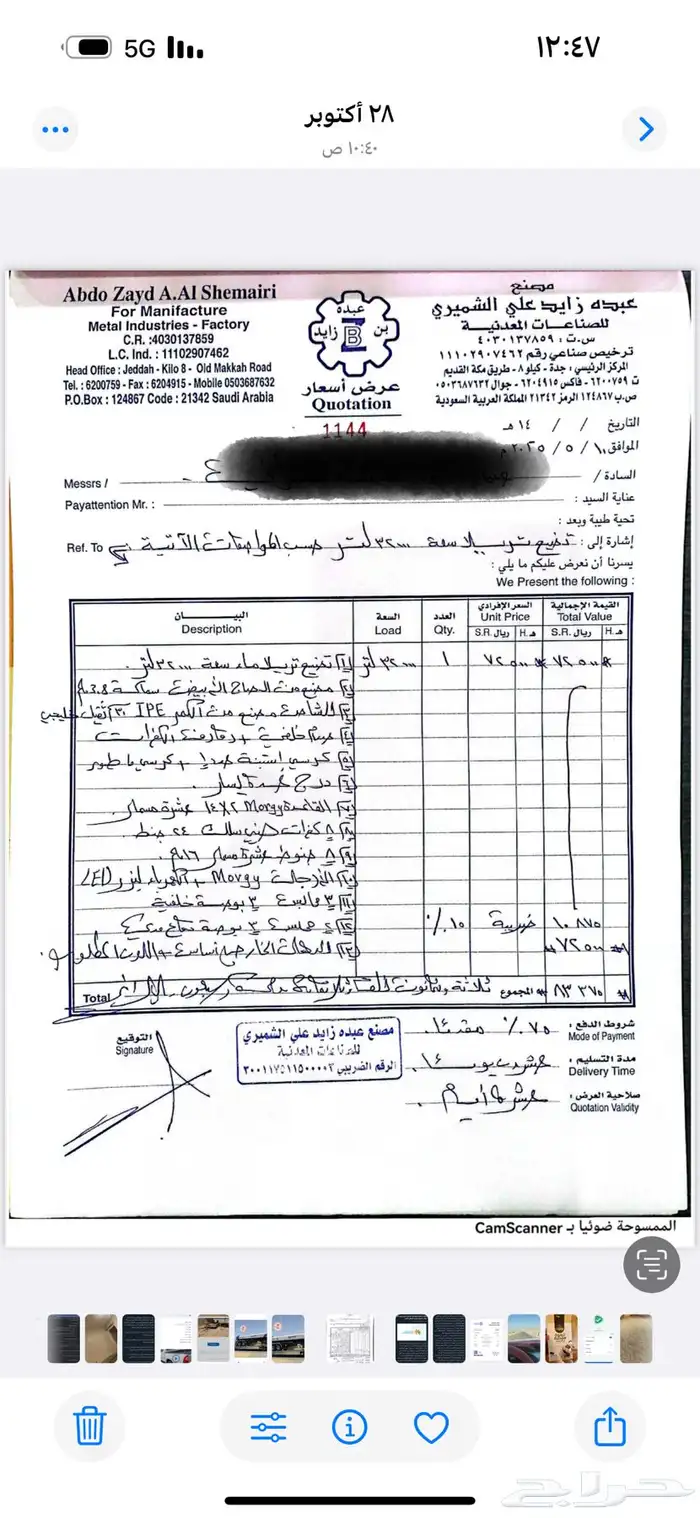 ١٢:٤٧
5G
٢٨ أكتوبر
١٠:٤٠ ص
Abdo Zayd A.Al Shemairi
For Manifacture
Metal Industries - Factory
C.R. :4030137859
L.C. Ind. : 11102907462
Head Office : Jeddah - Kilo 8 - Old Makkah Road
Tel. : 6200759 - Fax : 6204915 - Mobile 0503687632
P.O.Box : 124867 Code : 21342 Saudi Arabia
عبده
بن
زايد
B
عرض أسعار
Quotation
1144
مصنع
عبده زايد علي الشميري
للصناعــات المعدنيــة
س.ت : ٤٠٣٠١٣٧٨٥٩
ترخيص صناعي رقم ١١١٠٢٩٠٧٤٦٢
المركز الرئيسي : جدة - كيلو ٨ - طريق مكة القديم
ت ٦٢٠٠٧٥٩ - فاكس ٦٢٠٤٩١٥ - جوال ٠٥٠٣٦٨٧٦٣٢
ص.ب ١٢٤٨٦٧ الرمز ٢١٣٤٢ المملكة العربية السعودية
التاريخ / / ١٤ هـ
الموافق ١٠ / ٥ / ٢٠٢٥ م
السادة /
Messrs /
عناية السيد :
Payattention Mr. :
تحية طيبة وبعد :
إشارة إلى : تصنيع تريلا سعة ٣٢٠٠٠ لتر حسب المواصفات الآتية
Ref. To
يسرنا أن نعرض عليكم ما يلي :
We Present the following :
البيـــــان
Description
السعة
Load
العدد
Qty.
السعر الإفرادي
Unit Price
S.R. ريال
هـ. H.
القيمة الإجمالية
Total Value
S.R. ريال
هـ. H.
١) تصنيع تريلا ماء سعة ٣٢٠٠٠ لتر.
٣٢٠٠٠ لتر
١
٧٢٥٠٠
٧٢٥٠٠
٢) مصنع من الصاج الأبيض سماكة 3.8
٣) الشاصي مصنع من الكمر IPE ٣٠ ثقيل خليجي
٤) خلفية + رفارف الكفرات
٥) كرسي إستبنة
٦) درج
٧) القاعدة Morgy ١٤x٢ عشرة مسمار.
٨) ٨ كفرات سلك ٢٤ جنط
٩) ٨ جنوط عشرة مسمار
١٠) Morgy + الكهرباء ليزر LED
١١) ٣ بوصة خلفية
١٢) ٣ بوصة
١٣) الدهان الخارجي أساسي + اللون المطلوب.
١٥٪
ضريبة
١٠٨٧٥
٧٢٥٠٠
Total
ثلاثة وثمانون
المجموع
٨٣٣٧٥
التوقيع
Signature
مصنع عبده زايد علي الشميري
للصناعات المعدنية
الرقم الضريبي
شروط الدفع :
Mode of Payment
٧٥٪ مقدماً.
مدة التسليم :
Delivery Time
عشرون يوماً.
صلاحية العرض :
Quotation Validity
عشرة أيام.
الممسوحة ضوئيا بـ CamScanner
حراج